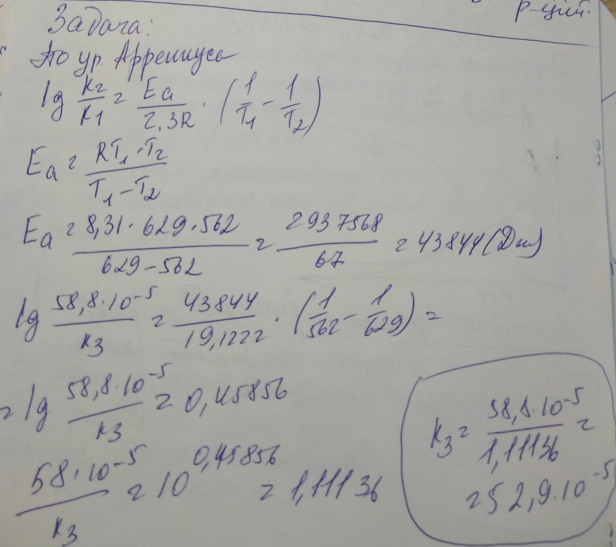 р-ций.
Задача:
По ур. Аррениуса
lg K2/K1 = Ea/2,3R · (1/T1 - 1/T2)
Ea = RT1·T2/T1-T2
Ea = 8,31·629·562/629-562 = 2937568/67 = 43844 (Дж)
lg 58,8·10^-5/K3 = 43844/19,1222 · (1/562 - 1/629) =
= lg 58,8·10^-5/K3 = 0,45856
58·10^-5/K3 = 10^0,45856 = 1,11136
K3 = 58,8·10^-5/1,11136 =
= 52,9·10^-5